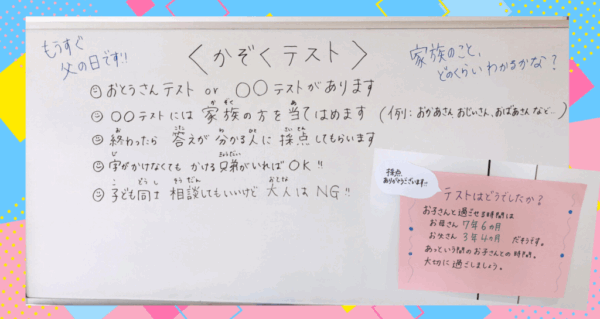 もうすぐ
父の日です!!
〈かぞくテスト〉
家族のこと、
どのくらいわかるかな？
おとうさんテスト or ○○テストがあります
○○テストには 家族の方を当てはめます (例：おかあさん、おじいさん、おばあさん など…)
終わったら 答えが 分かる人に 採点してもらいます
字がかけなくても かける兄弟がいればOK!!
子ども同士 相談してもいいけど 大人はNG!!
採点
ありがとうございます!!
テストはどうでしたか？
お子さんと過ごせる時間は
お母さん 7年6ヵ月
お父さん 3年4ヵ月 だそうです。
あっという間のお子さんとの時間。
大切に過ごしましょう。